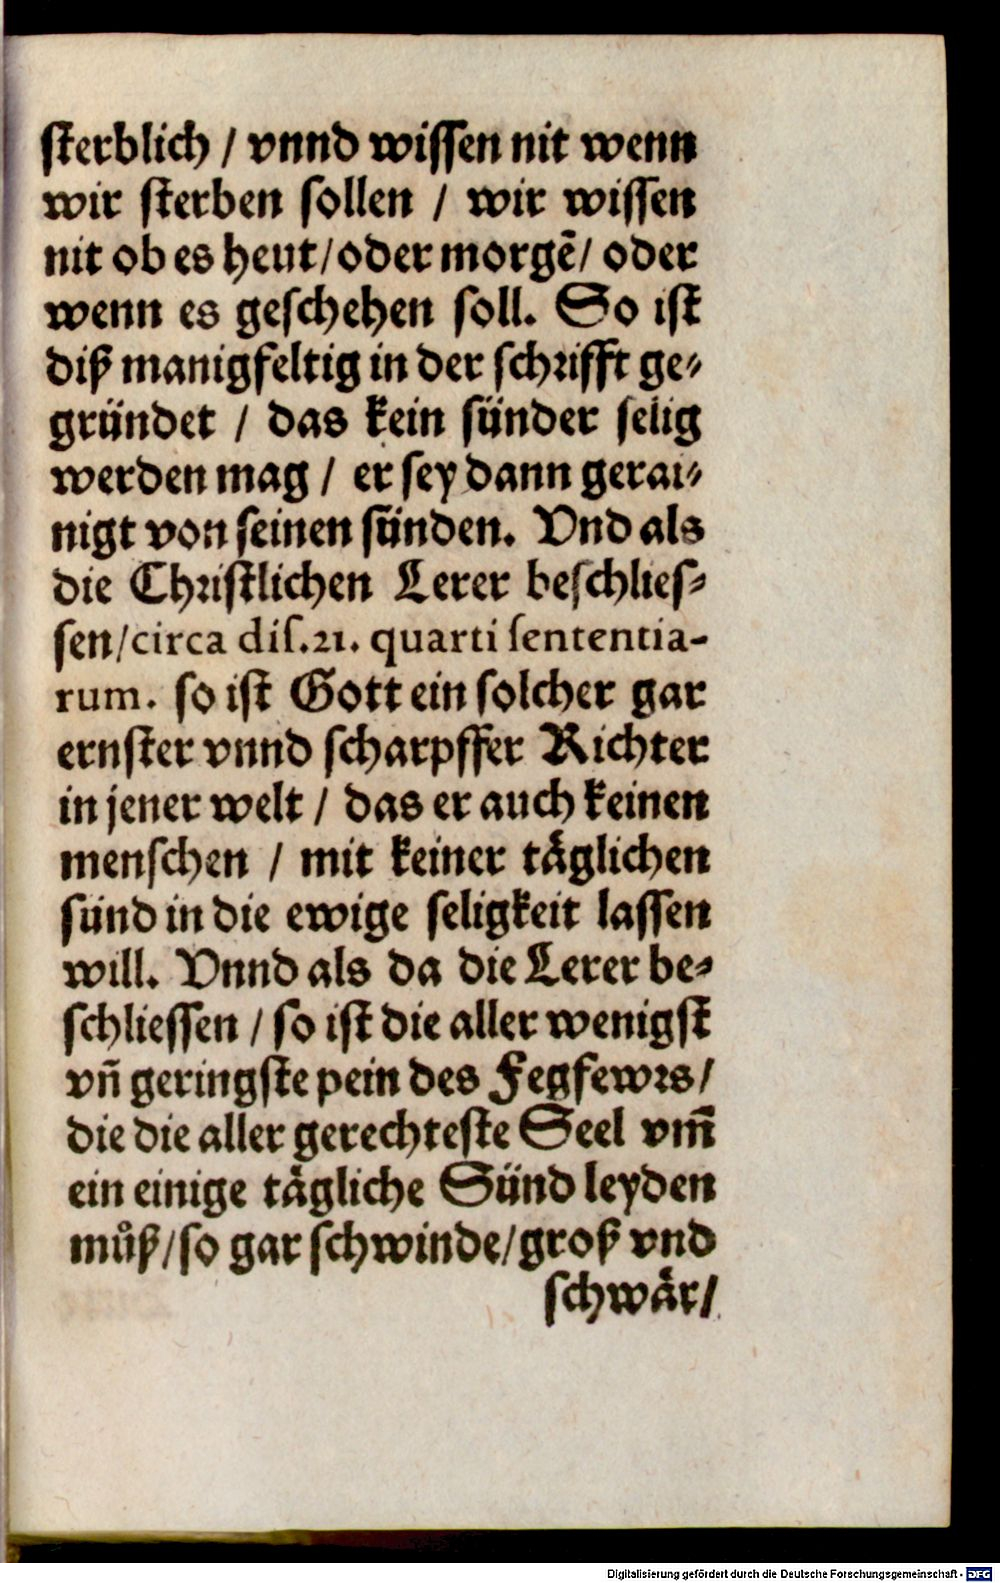 sterblich / vnnd wissen nit wenn
wir sterben sollen / wir wissen
nit ob es heut/oder morgẽ/ oder
wenn es geschehen soll. So ist
diß manigfeltig in der schrifft ge-
gründet / das kein sünder selig
werden mag / er sey dann gerai-
nigt von seinen sünden. Vnd als
die Christlichen Lerer beschlies-
sen/circa dis.21. quarti sententia-
rum. so ist Gott ein solcher gar
ernster vnnd scharpffer Richter
in jener welt / das er auch keinen
menschen / mit keiner täglichen
sünd in die ewige seligkeit lassen
will. Vnnd als da die Lerer be-
schliessen / so ist die aller wenigst
vñ geringste pein des Fegfewrs/
die die aller gerechteste Seel vm̃
ein einige tägliche Sünd leyden
můß/so gar schwinde/groß vnd
schwär/
Digitalisierung gefördert durch die Deutsche Forschungsgemeinschaft - DFG